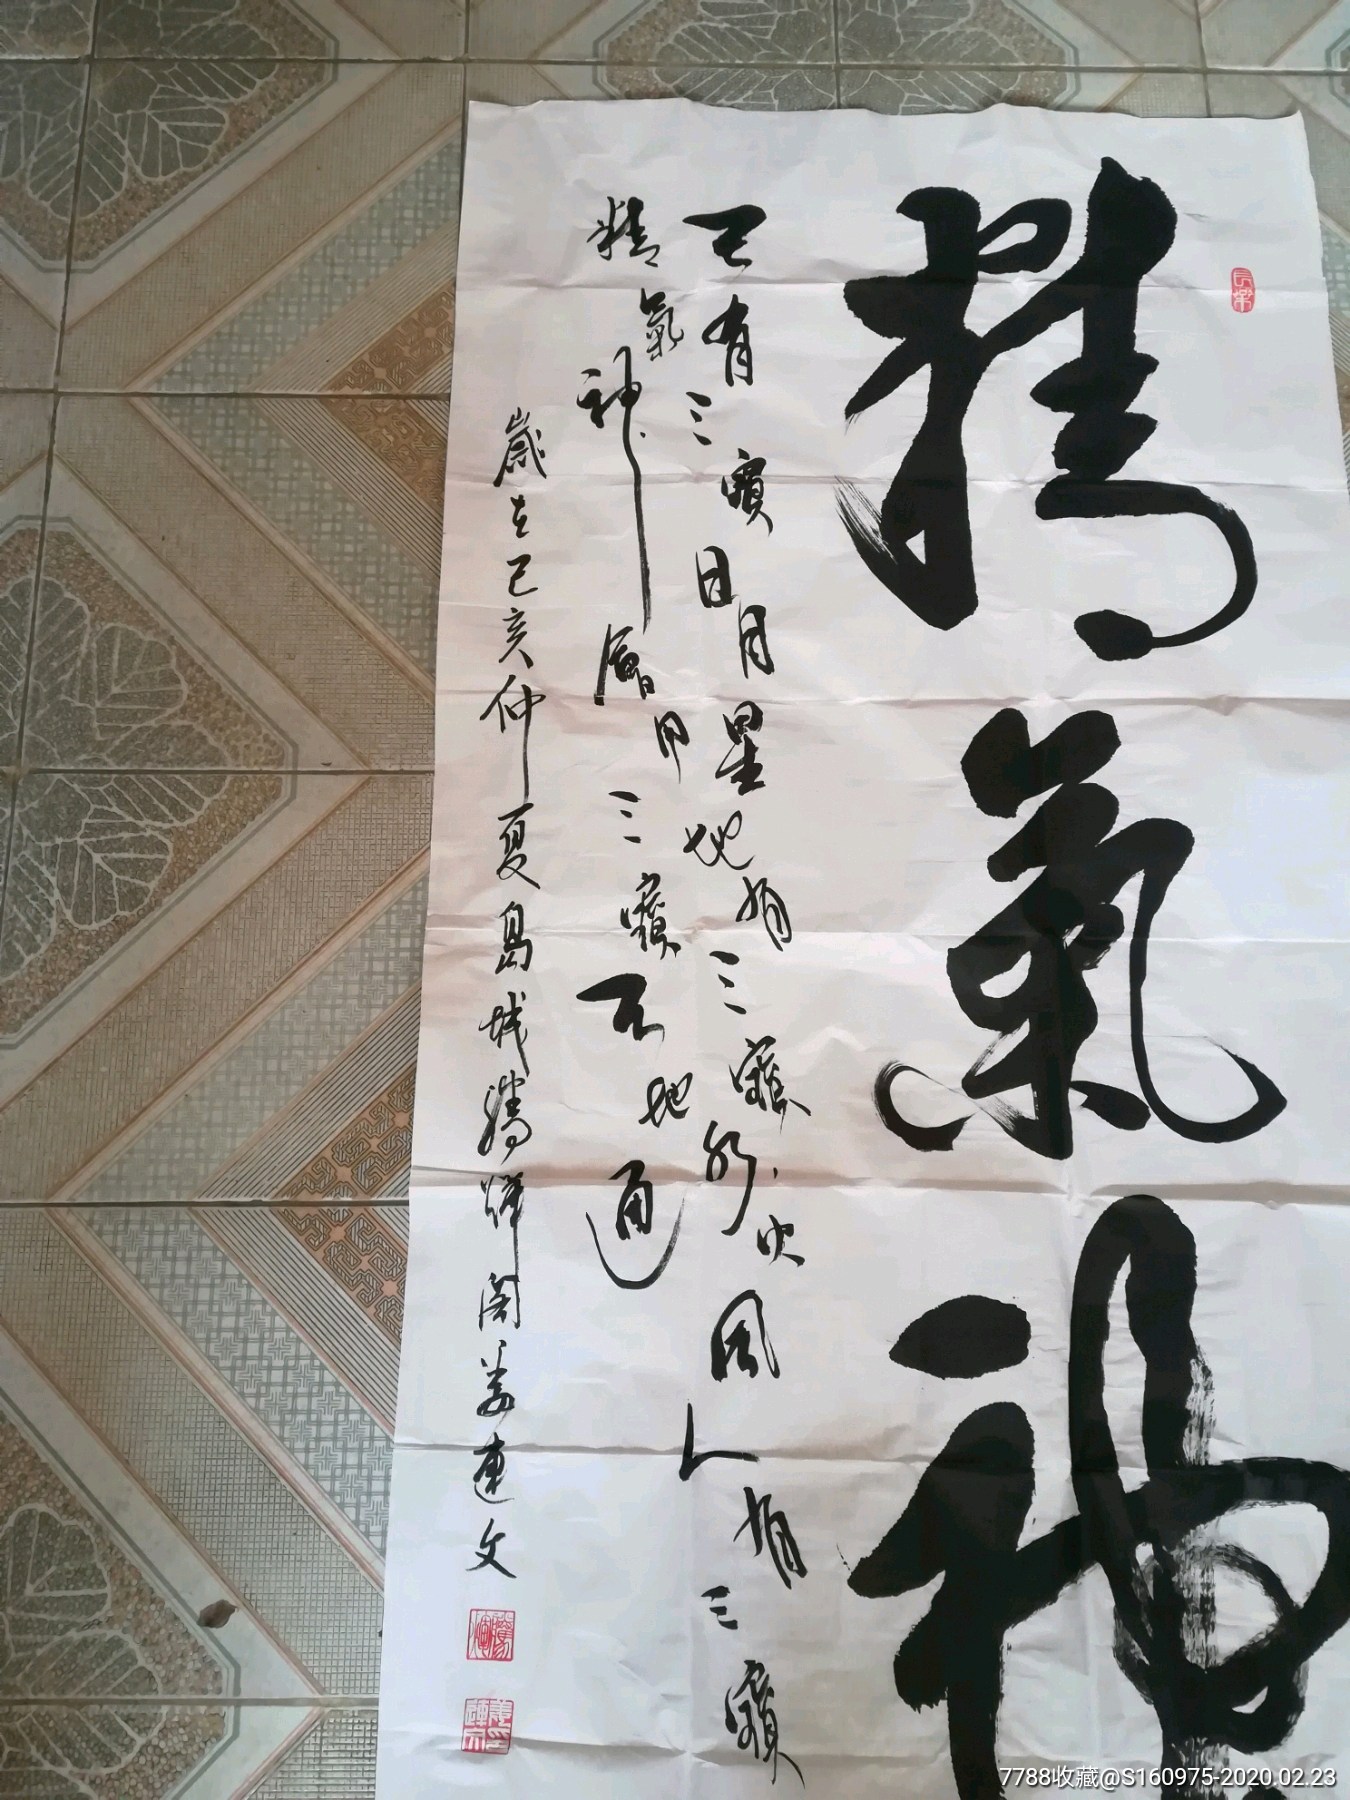 精氣神
天有三寶日月星地有三寶水火風人有三寶
精氣神層用三寶天地通
歲在己亥仲夏島城騰輝閣姜連文
長樂
7788收藏@S160975-2020.02.23